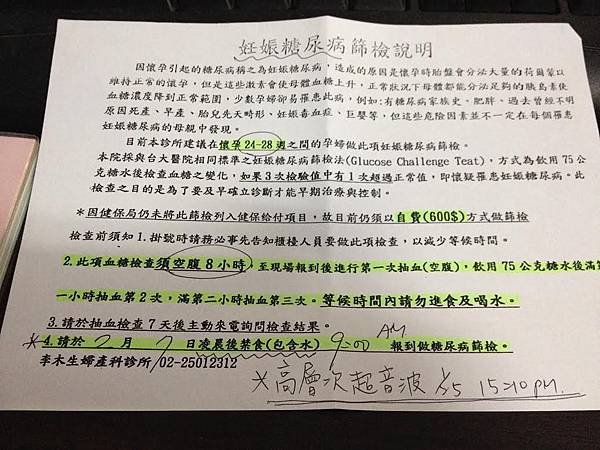 妊娠糖尿病篩檢說明
因懷孕引起的糖尿病稱之為妊娠糖尿病，造成的原因是懷孕時胎盤會分泌大量的荷爾蒙以
維持正常的懷孕，但是這些激素會使母體血糖上升，正常狀況下母體都能分泌足夠的胰島素使
血糖濃度降到正常範圍，少數孕婦卻易罹患此病，例如:有糖尿病家族史、肥胖、過去曾經不明
原因死產、早產、胎兒先天畸形、妊娠毒血症、巨嬰等，但這些危險因素並不一定在每個罹患
妊娠糖尿病的母親中發現。
目前本診所建議在懷孕 24-28 週之間的孕婦做此項妊娠糖尿病篩檢。
本院採與台大醫院相同標準之妊娠糖尿病篩檢法(Glucose Challenge Teat)，方式為飲用 75 公
克糖水後檢查血糖之變化，如果 3 次檢驗值中有 1 次超過正常值，即懷疑罹患妊娠糖尿病。此
檢查之目的是為了要及早確立診斷才能早期治療與控制。
＊因健保局仍未將此篩檢列入健保給付項目，故目前仍須以自費(600$)方式做篩檢
檢查前須知 1.掛號時請務必事先告知櫃檯人員要做此項檢查，以減少等候時間。
2.此項血糖檢查須空腹 8 小時，至現場報到後進行第一次抽血(空腹)，飲用 75 公克糖水後滿第
一小時抽血第 2 次，滿第二小時抽血第三次。等候時間內請勿進食及喝水。
3.請於抽血檢查 7 天後主動來電詢問檢查結果。
＊4.請於 2 月 7 日凌晨後禁食(包含水) 9:00 AM 報到做糖尿病篩檢。
李木生婦產科診所 02-25012312
＊高層次超音波 15:10 PM.